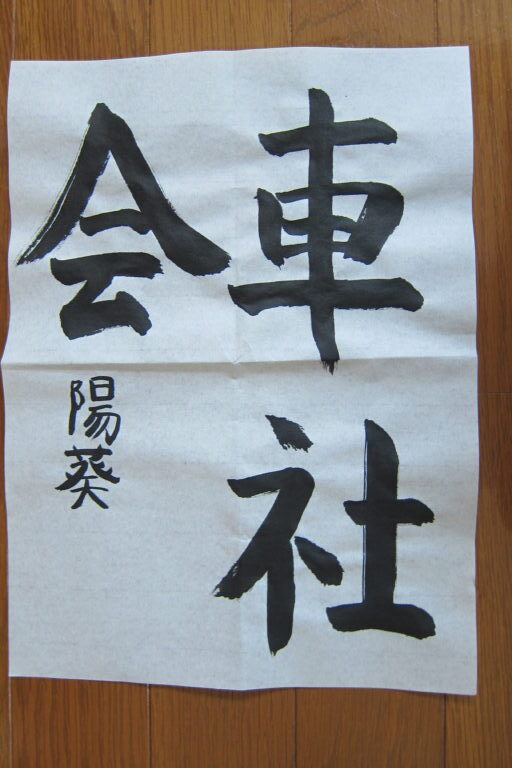 車社
会
陽葵